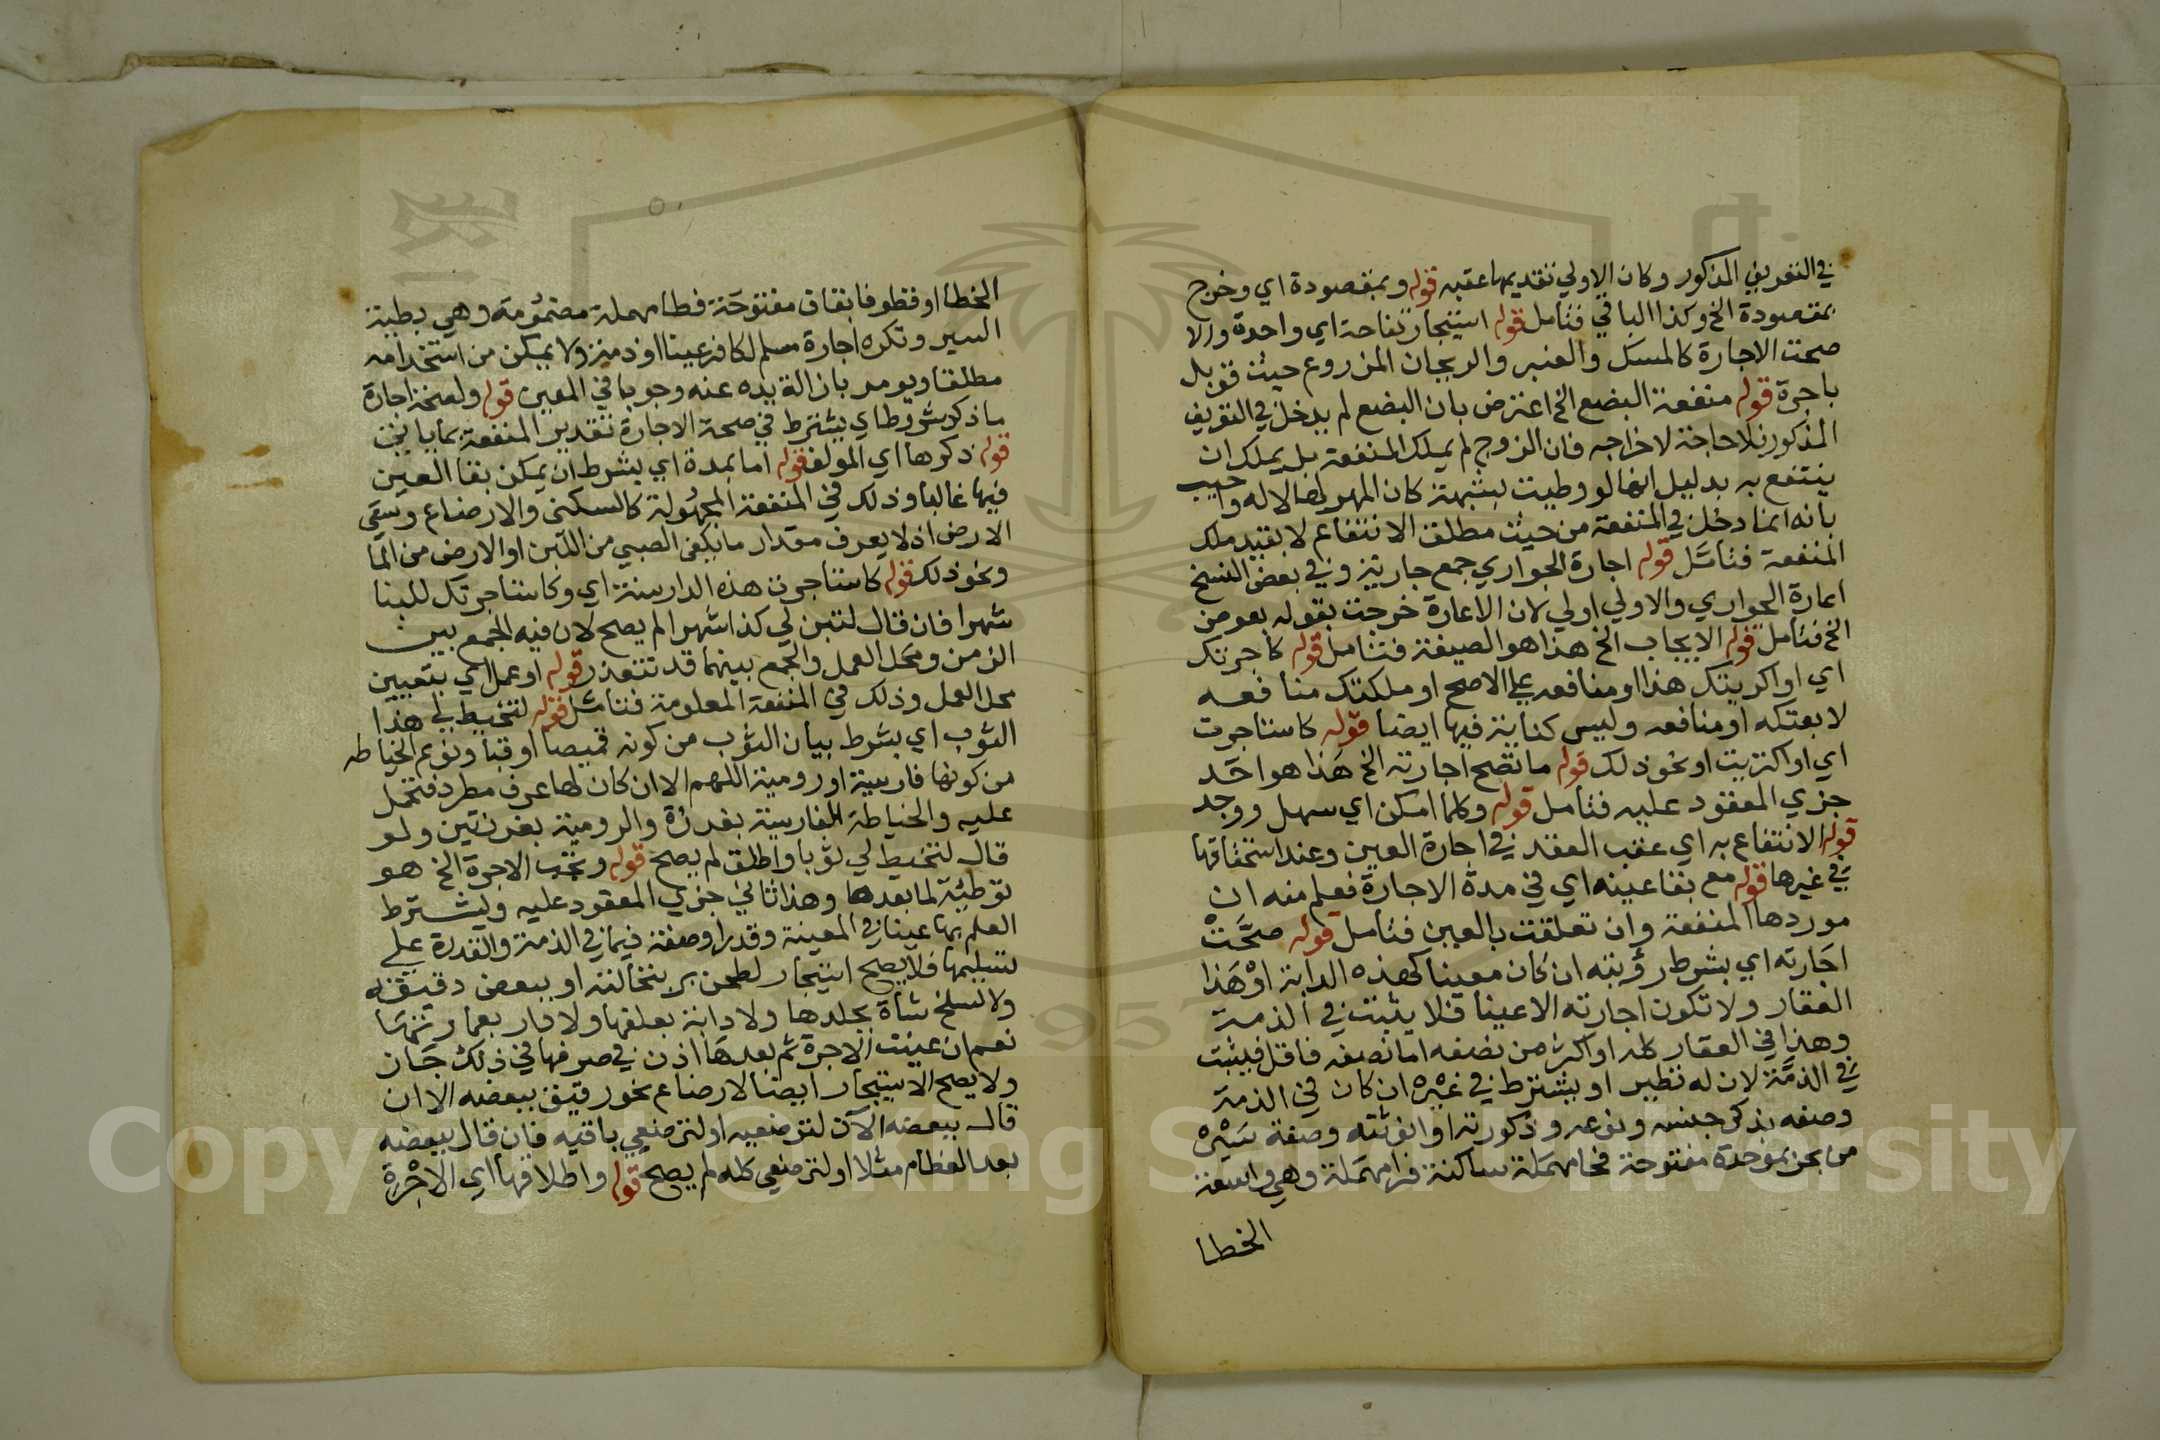 في التعريف المذكور وكان الاولي تقديمها عقبه قوله وبمقصودة اي وخرج
بمقصودة الخ وكذا الباقي فتأمل قوله استيجار تفاحة اي واحدة والا
صحت الاجارة كالمسك والعنبر والريحان المزروع حيث قوبل
باجرة قوله منفعة البضع الخ اعترض بان البضع لم يدخل في التعريف
المذكور فلا حاجة لاخراجه فان الزوج لم يملك المنفعة بل يملك ان
ينتفع به بدليل انها لو وطيت بشبهة كان المهر لها لا له واجيب
بانه انما دخل في المنفعة من حيث مطلق الانتفاع لا بقيد ملك
المنفعة فتأمل قوله اجارة الجواري جمع جارية وفي بعض النسخ
اعارة الجواري والاولي اولي لان الاعارة خرجت بقوله بعوض
الخ فتأمل قوله الايجاب الخ هذا هو الصيغة فتأمل قوله كاجرتك
اي او اكريتك هذا او منافعه علي الاصح او ملكتك منافعه
لا بعتكه او منافعه وليس كناية فيها ايضا قوله كاستاجرت
اي او اكتريت او نحو ذلك قوله ما تصح اجارته الخ هذا هو احد
جزي المعقود عليه فتأمل قوله وكلما امكن اي سهل ووجد
قوله الانتفاع به اي عقب العقد في اجارة العين وعند استحقاقها
في غيرها قوله مع بقا عينه اي في مدة الاجارة فعلم منه ان
موردها المنفعة وان تعلقت بالعين فتأمل قوله صحت
اجارته اي بشرط رؤيته ان كان معينا كهذه الدابة او هذا
العقار ولا تكون اجارته الا عينا فلا يثبت في الذمة
وهذا في العقار كله او اكثر من نصفه اما نصفه فاقل فيثبت
في الذمة لان له نظير او يشترط في غيره ان كان في الذمة
وصفه بذكر جنسه ونوعه وذكورته او انوثته وصفة سيره
من بحر بموحدة مفتوحة فحا مهملة ساكنة فرا مهملة وهي واسعة
الخطا
٥٠
الخطا او قطوفا بقاف مفتوحة فطا مهملة مضمومة وهي بطية
السير وتكره اجارة مسلم لكافر عينا او ذمة ولا يمكن من استخدامه
مطلقا ويومر بازالة يده عنه وجوبا في المعين قوله ولصحة اجارة
ما ذكر شروط اي يشترط في صحة الاجارة تقدير المنفعة بما ياتي
قوله ذكرها اي المولف قوله اما بمدة اي بشرط ان يمكن بقا العين
فيها غالبا وذلك في المنفعة المجهولة كالسكني والارضاع وسقي
الارض اذ لا يعرف مقدار ما يكفي الصبي من اللبن او الارض من الما
ونحو ذلك قوله كاستاجرت هذه الدار سنة اي وكاستاجرتك للبنا
شهرا فان قال لتبن لي كذا شهرا لم يصح لان فيه الجمع بين
الزمن ومحل العمل والجمع بينهما قد تتعذر قوله او عمل اي بتعيين
محل العمل وذلك في المنفعة المعلومة فتأمل قوله لتخيط لي هذا
الثوب اي بشرط بيان الثوب من كونه قميصا او قبا ونوع الخياطه
من كونها فارسية او رومية اللهم الا ان كان لها عرف مطرد فتحمل
عليه والخياطة الفارسية بغرزة والرومية بغرزتين ولو
قال لتخيط لي ثوبا واطلق لم يصح قوله وتجب الاجرة الخ هو
توطئة لما بعدها وهذا ثاني جزي المعقود عليه ويشترط
العلم بها عينا في المعينة وقدرا وصفة فيما في الذمة والقدرة علي
تسليمها فلا يصح استيجار لطحن بر بنخالته او ببعض دقيقه
ولا لسلخ شاة بجلدها ولا دابة بعلفها ولا دار بعمارتها
نعم ان عينت الاجرة ثم بعدها اذن في صرفها في ذلك جان
ولا يصح الاستيجار ايضا لارضاع نحو رقيق ببعضه الا ان
قال ببعضه الآن لترضعيه او لترضعي باقيه فان قال ببعضه
بعد الفطام مثلا او لترضعي كله لم يصح قوله واطلاقها اي الاجرة
Copyright © King Saud University
1957